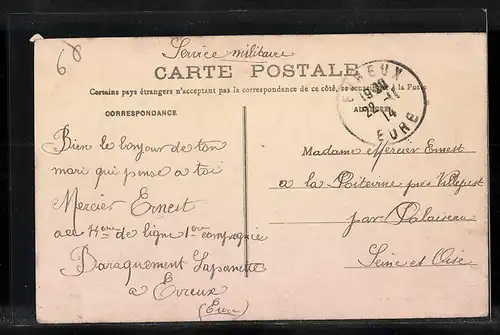 60
Service militaire
CARTE POSTALE
Certains pays étrangers n'acceptant pas la correspondance de ce côté, se à la Poste
CORRESPONDANCE
EVREUX
19
22 14
EURE
Bien le bonjour de ton
mari qui pense a toi
Mercier Ernest
au de ligne 1ère compagnie
Baraquement
a Evreux
(Eure)
Madame Mercier Ernest
a la près Villejust
par Palaiseau
Seine et Oise